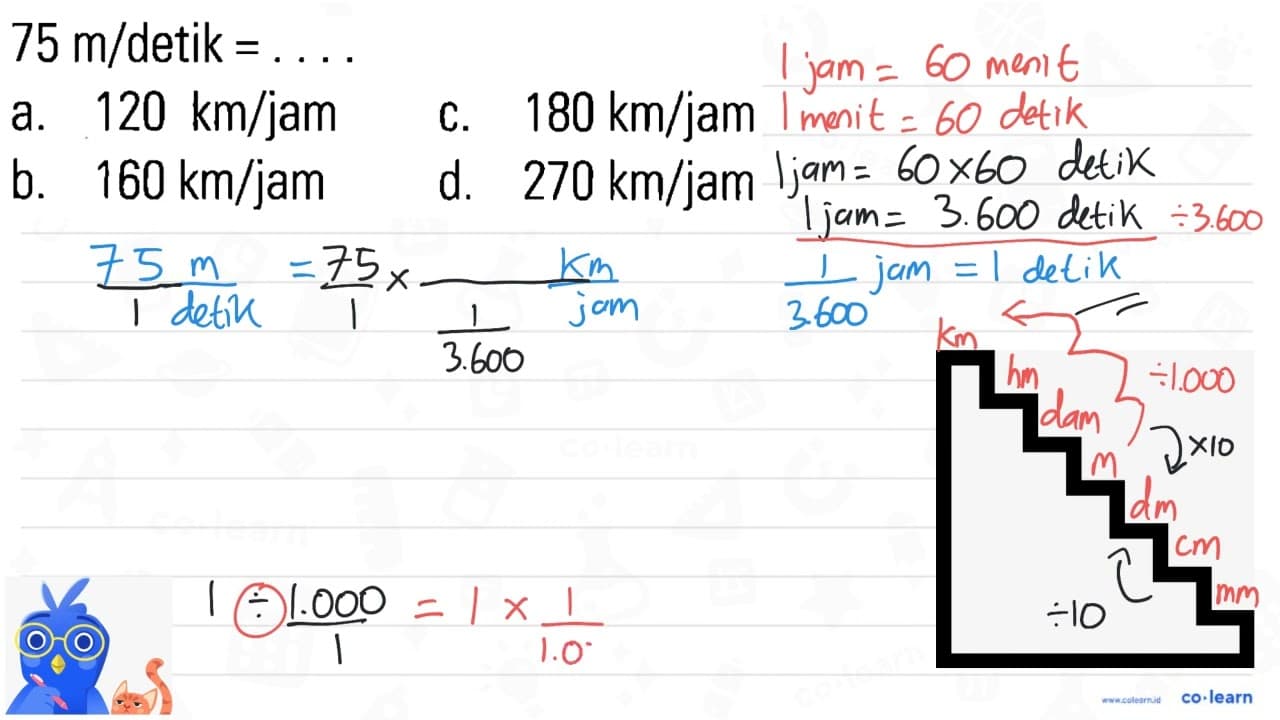 75 m/detik = . . . .
a. 120 km/jam c. 180 km/jam
b. 160 km/jam d. 270 km/jam
1 jam = 60 menit
1 menit = 60 detik
1 jam = 60 × 60 detik
1 jam = 3.600 detik ÷3.600
1/3.600 jam = 1 detik
75 m / 1 detik = 75/1 × ___/(1/3.600) km/jam
km
hm
dam
m
dm
cm
mm
÷1.000
×10
÷10
1 ÷ 1.000/1 = 1 × 1/1.0
www.colearn.id co·learn